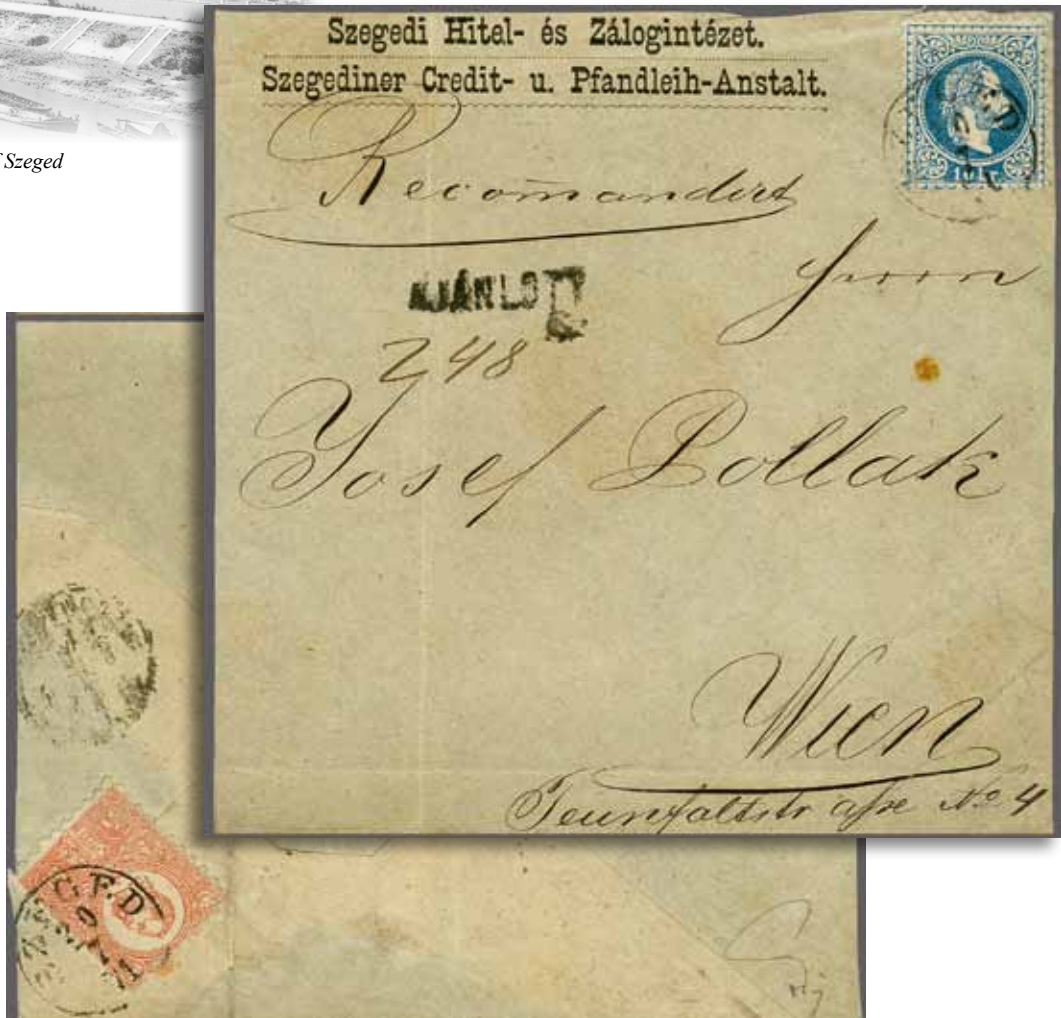 Szeged
Szegedi Hitel- és Zálogintézet.
Szegediner Credit- u. Pfandleih-Anstalt.
Recomandirt
AJÁNLOTT
Herrn
248
Josef Pollak
Wien
No 4
SZEGED